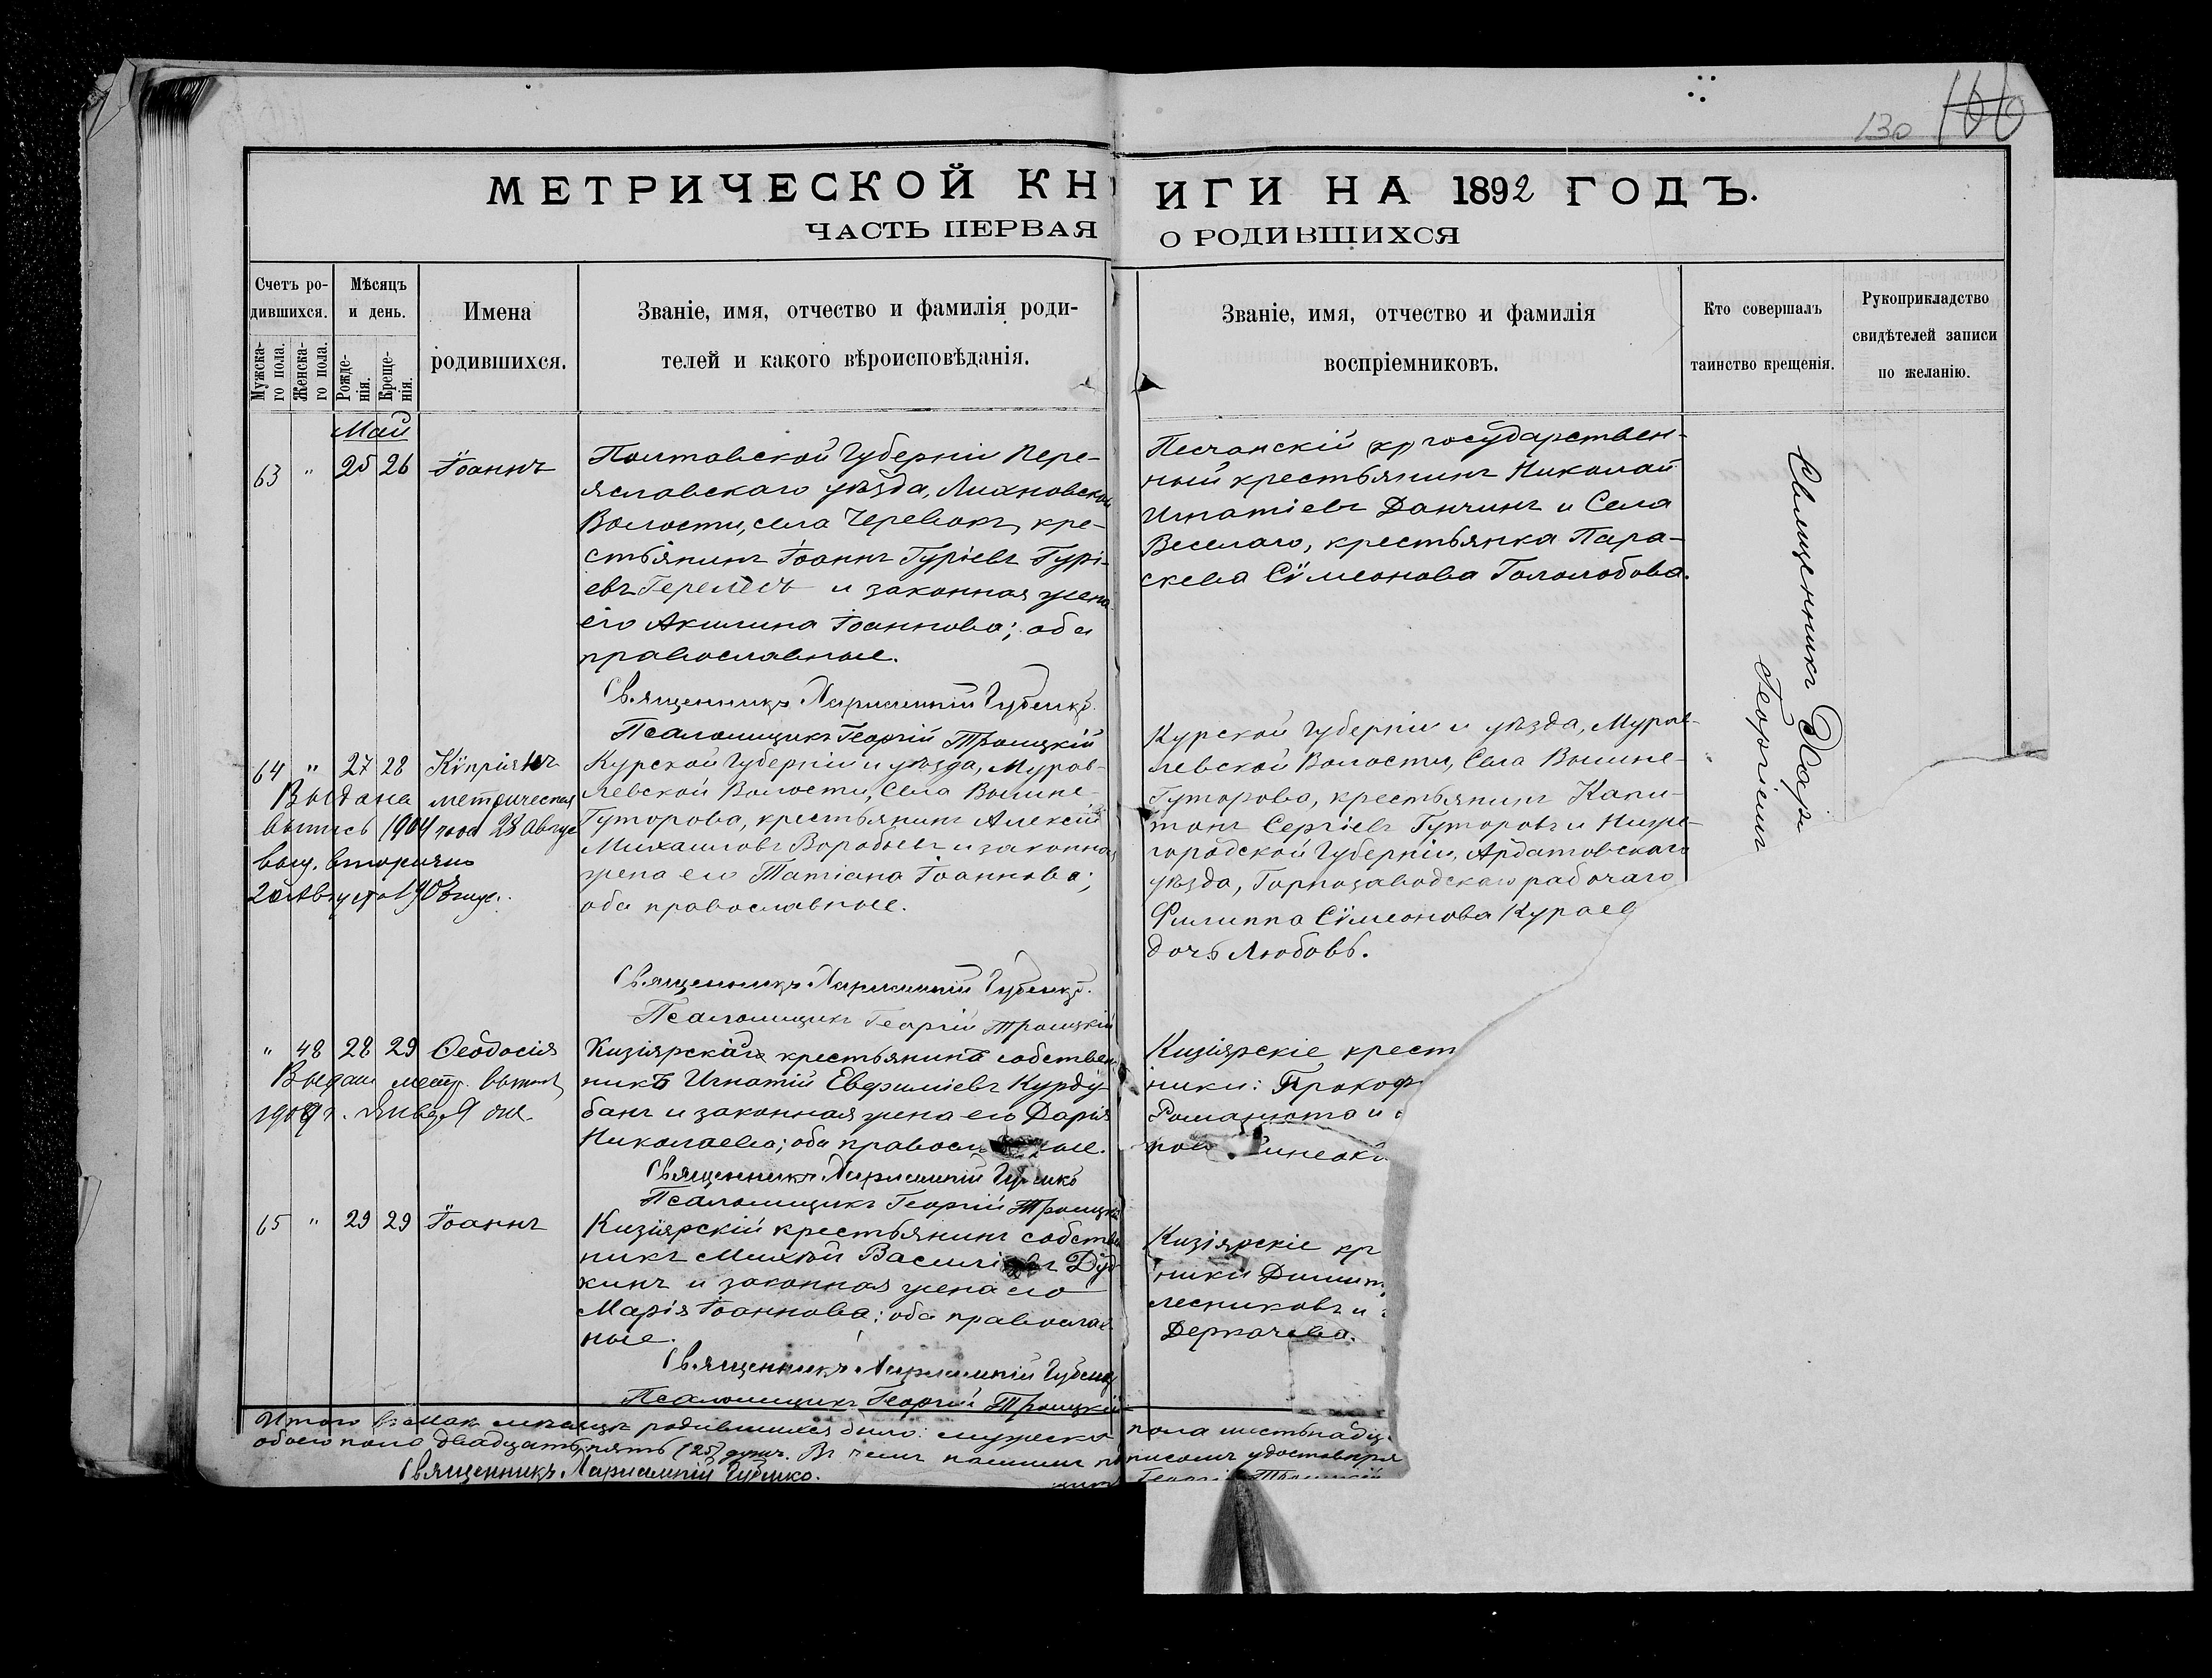 130 166
МЕТРИЧЕСКОЙ КНИГИ НА 1892 ГОДЪ.
ЧАСТЬ ПЕРВАЯ О РОДИВШИХСЯ
Счетъ родившихся.
Мужскаго пола.
Женскаго пола.
Мѣсяцъ и день.
Рожденія.
Крещенія.
Имена родившихся.
Званіе, имя, отчество и фамилія роди-
телей и какого вѣроисповѣданія.
Званіе, имя, отчество и фамилія
воспріемниковъ.
Кто совершалъ
таинство крещенія.
Рукоприкладство
свидѣтелей записи
по желанію.
Май
63 " 25 26 Іоаннъ
Полтавской Губерніи Пере-
яславскаго уѣзда,
Волости, села Черевокъ, кре-
стьянинъ Іоаннъ Гуріевъ Гурі-
евъ и законная жена
его Акилина Іоаннова; оба
православные.
Священникъ Харлампій Губенко.
Псаломщикъ Георгій Троицкій
Песчанскій государствен-
ный крестьянинъ Николай
Игнатіевъ Данчинъ и Села
Веселаго, крестьянка Пара-
скева Сѵмеонова Гололобова.
Священникъ
Георгіевъ
64 " 27 28 Кѵпріянъ
Выдана метрическая
выпись 1904 года 28 Авгус
выд. вторично
20 Августа
Курской Губерніи и уѣзда, Мурав-
левской Волости, Села Вышне-
Гуторова, крестьянинъ Алексій
Михаиловъ Воробьевъ и законная
жена его Татіана Іоаннова;
оба православные.
Священникъ Харлампій Губенко.
Псаломщикъ Георгій Троицкій
Курской Губерніи и уѣзда, Мурав-
левской Волости, Села Вышне-
Гуторова, крестьянинъ Капи-
тонъ Сергіевъ Гуторовъ и Ниже-
городской Губерніи, Ардатовскаго
уѣзда, Горнозаводскаго рабочаго
Филиппа Сѵмеонова Кураев
дочь Любовь.
" 48 28 29 Ѳеодосія
Выдана метр. выпись
Кизіярскій крестьянинъ собствен-
никъ Игнатій Евфиміевъ Курду-
банъ и законная жена его Дарія
Николаева; оба
Священникъ Харлампій Губенко
Псаломщикъ Георгій Троицкій
Кизіярскіе крест
ники: Прокоф
Романюта и
65 " 29 29 Іоаннъ
Кизіярскій крестьянинъ собстве
никъ
и законная жена его
Марія Іоаннова; оба православ-
ные.
Священникъ Харлампій Губенко
Псаломщикъ Георгій Троицкій
Кизіярскіе кр
ники Димит
лесниковъ и
Деркачева.
Итого въ маѣ мѣсяцѣ родившихся было: мужеска пола шестьнадц
обоего пола двадцать пять (25) душъ. Въ чемъ нашимъ подписомъ удостовѣря
Священникъ Харлампій Губенко. Георгій Троицкій